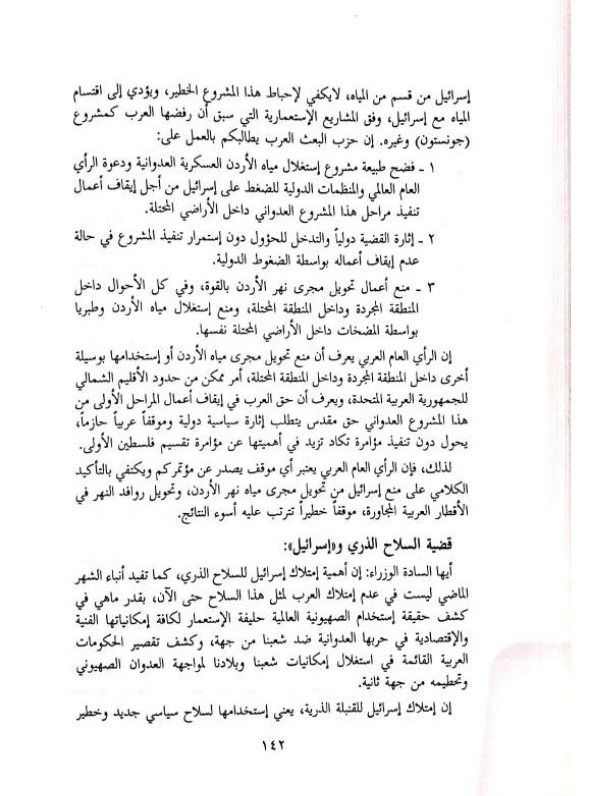 إسرائيل من قسم من المياه، لايكفي لإحباط هذا المشروع الخطير، ويؤدي إلى اقتسام
المياه مع إسرائيل، وفق المشاريع الإستعمارية التي سبق أن رفضها العرب كمشروع
(جونستون) وغيره. إن حزب البعث العرب يطالبكم بالعمل على:
١ ـ فضح طبيعة مشروع إستغلال مياه الأردن العسكرية العدوانية ودعوة الرأي
العام العالمي والمنظمات الدولية للضغط على إسرائيل من أجل إيقاف أعمال
تنفيذ مراحل هذا المشروع العدواني داخل الأراضي المحتلة.
٢ ـ إثارة القضية دولياً والتدخل للحؤول دون إستمرار تنفيذ المشروع في حالة
عدم إيقاف أعماله بواسطة الضغوط الدولية.
٣ ـ منع أعمال تحويل مجرى نهر الأردن بالقوة، وفي كل الأحوال داخل
المنطقة المجردة وداخل المنطقة المحتلة، ومنع إستغلال مياه الأردن وطبريا
بواسطة المضخات داخل الأراضي المحتلة نفسها.
إن الرأي العام العربي يعرف أن منع تحويل مجرى مياه الأردن أو إستخدامها بوسيلة
أخرى داخل المنطقة المجردة وداخل المنطقة المحتلة، أمر ممكن من حدود الأقليم الشمالي
للجمهورية العربية المتحدة، ويعرف أن حق العرب في إيقاف أعمال المراحل الأولى من
هذا المشروع العدواني حق مقدس يتطلب إثارة سياسية دولية وموقفاً عربياً حازماً،
يحول دون تنفيذ مؤامرة تكاد تزيد في أهميتها عن مؤامرة تقسيم فلسطين الأولى.
لذلك، فإن الرأي العام العربي يعتبر أي موقف يصدر عن مؤتمركم ويكتفي بالتأكيد
الكلامي على منع إسرائيل من تحويل مجرى مياه نهر الأردن، وتحويل روافد النهر في
الأقطار العربية المجاورة، موقفاً خطيراً تترتب عليه أسوء النتائج.
قضية السلاح الذري و«إسرائيل»:
أيها السادة الوزراء: إن أهمية إمتلاك إسرائيل للسلاح الذري، كما تفيد أنباء الشهر
الماضي ليست في عدم إمتلاك العرب لمثل هذا السلاح حتى الآن، بقدر ماهي في
كشف حقيقة إستخدام الصهيونية العالمية حليفة الإستعمار لكافة إمكانياتها الفنية
والإقتصادية في حربها العدوانية ضد شعبنا من جهة، وكشف تقصير الحكومات
العربية القائمة في استغلال إمكانيات شعبنا وبلادنا لمواجهة العدوان الصهيوني
وتحطيمه من جهة ثانية.
إن إمتلاك إسرائيل للقنبلة الذرية، يعني إستخدامها لسلاح سياسي جديد وخطير
١٤٢